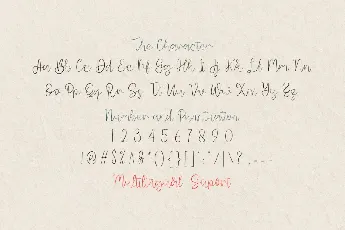 The Character
Aa Bb Cc Dd Ee Ff Gg Hh Ii Jj Kk Ll Mm Nn
Oo Pp Qq Rr Ss Tt Uu Vv Ww Xx Yy Zz
Number and Punctuation
1 2 3 4 5 6 7 8 9 0
!@#$%^&*(){}[]
Multilingual Suport